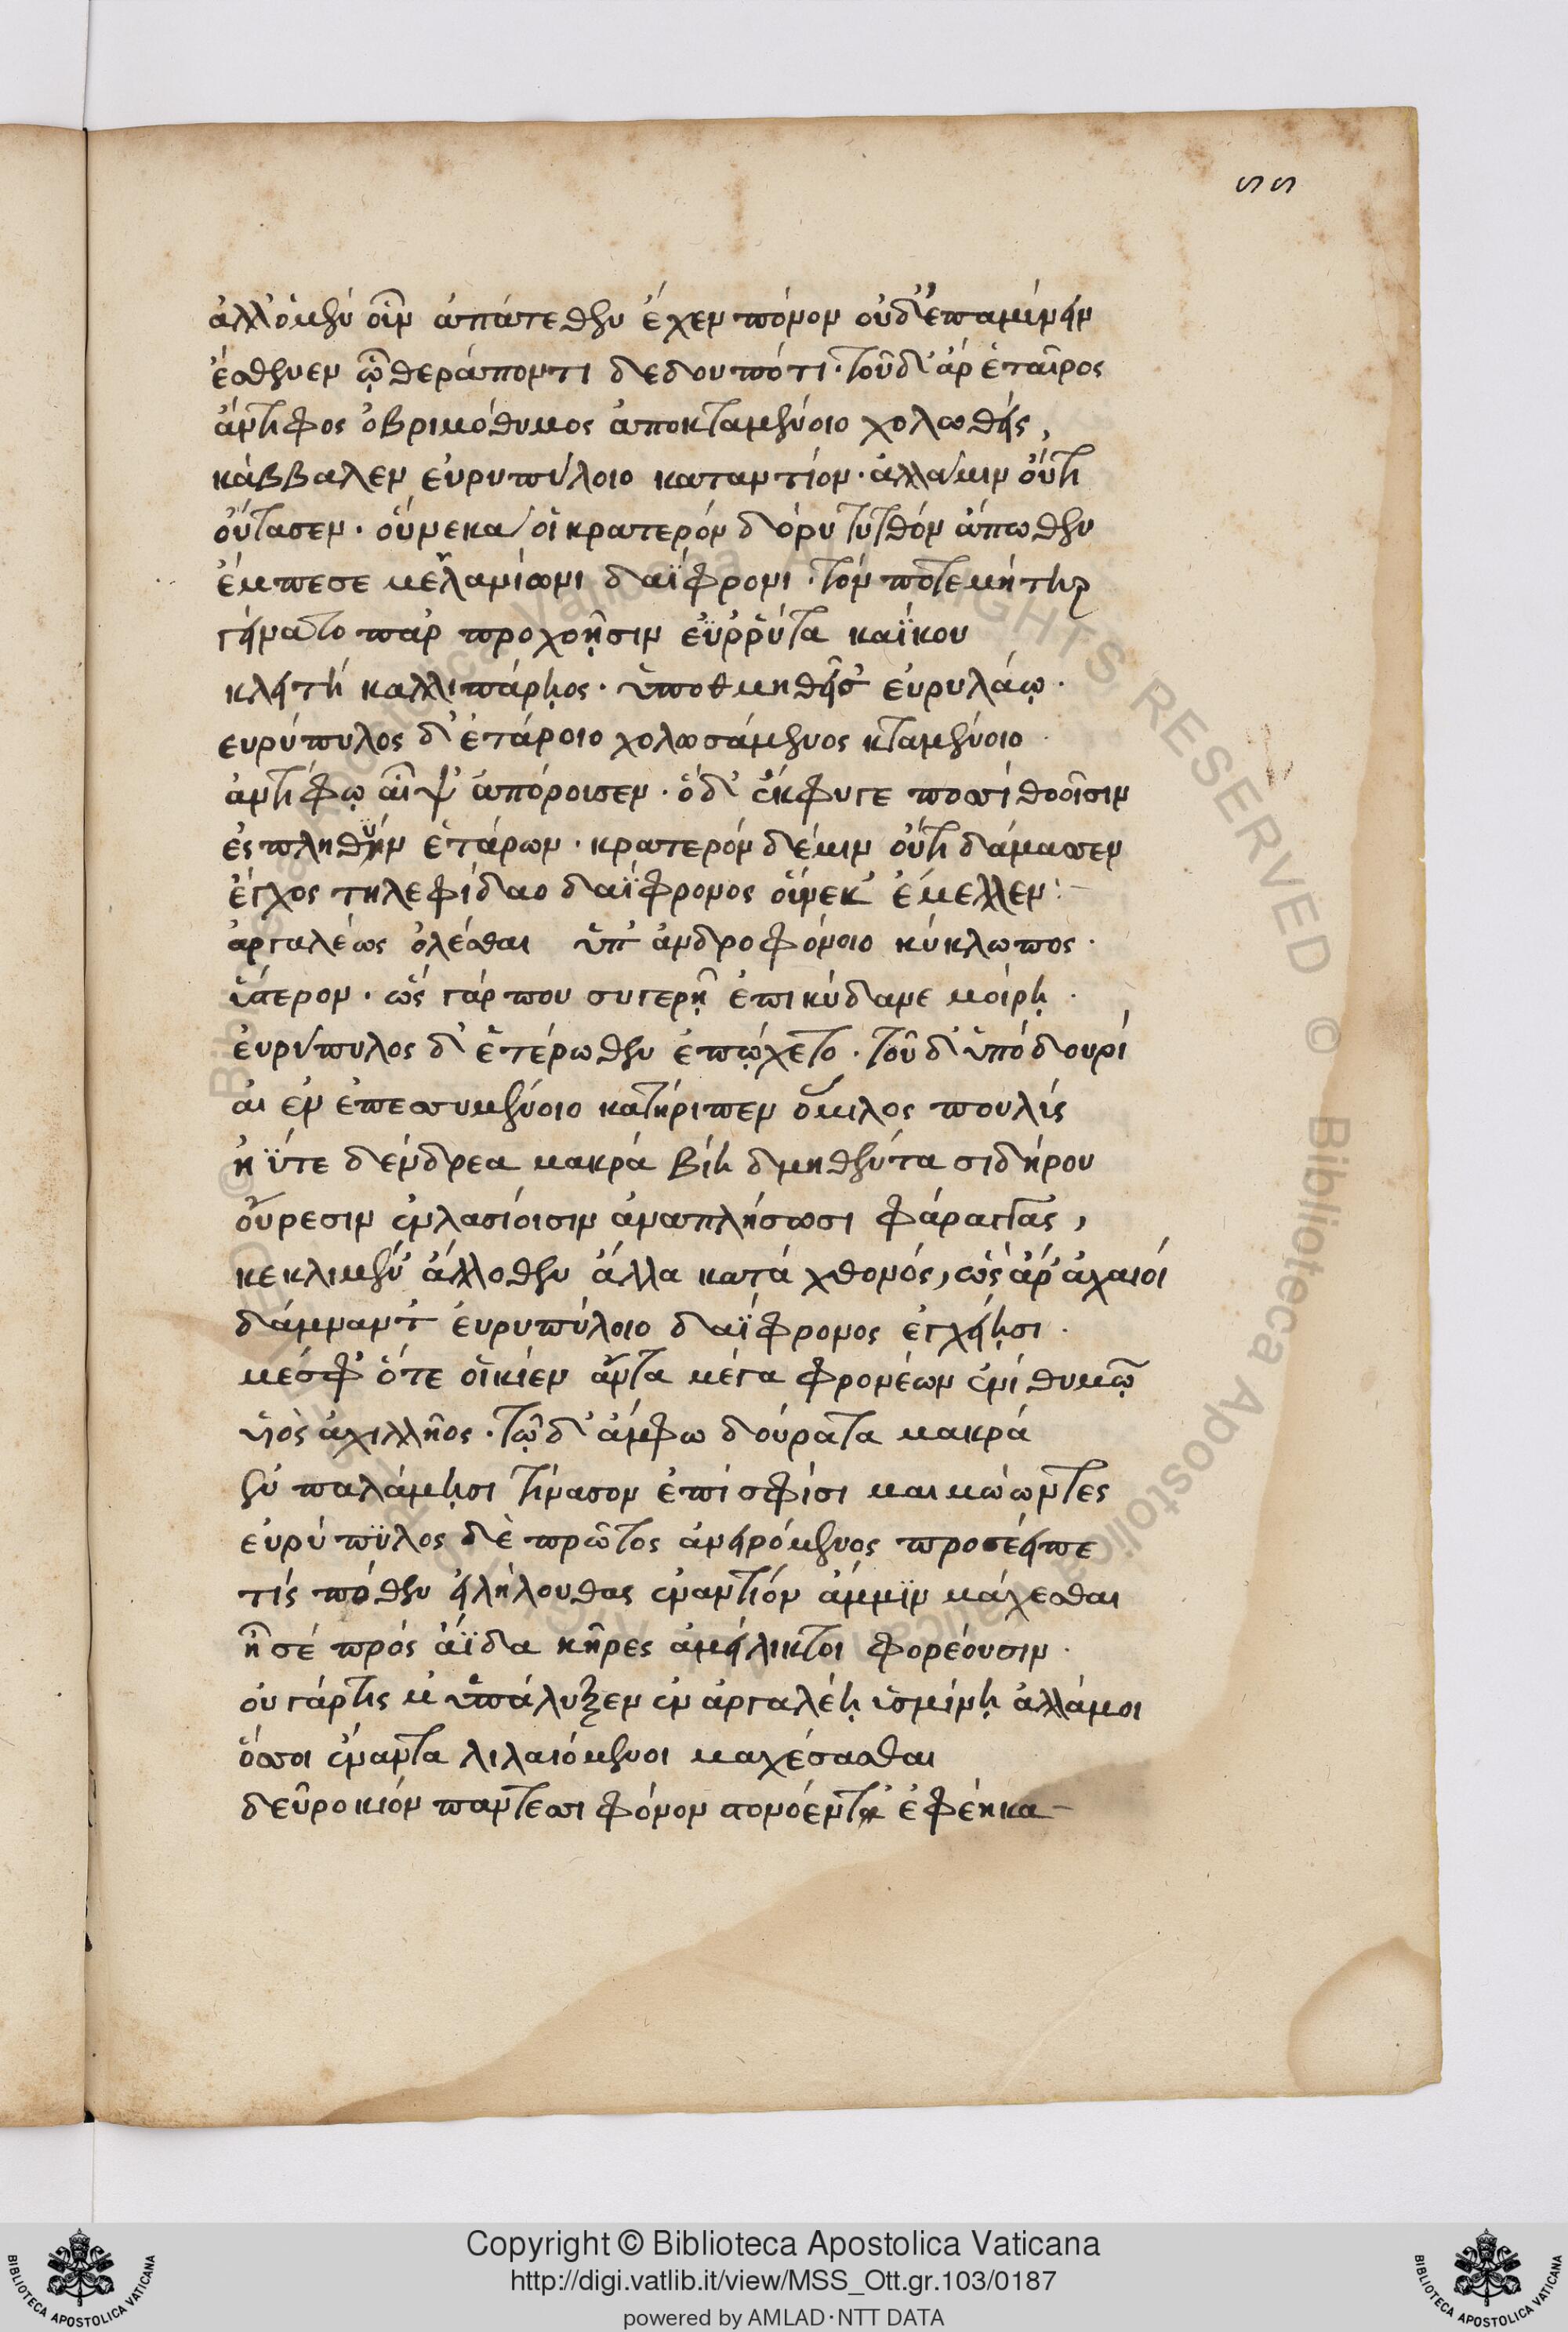 55
ἀλλ' ὁ μὲν οἷν ἀπάτεθεν ἔχεν πόνον οὐδ' ἐπαμύνειν
ἔσθενεν ᾧ θεράποντι δεδουπότι· τοῦ δ' ἀρ ἑταῖρος
ἄντιφος ὀβριμόθυμος ἀποκταμένοιο χολωθείς,
κάββαλεν εὐρυπύλοιο καταντίον· ἀλλά μιν οὔτι
οὔτασεν· οὕνεκά οἱ κρατερόν δόρυ τυτθόν ἄπωθεν
ἔμπεσε μελανίωνι δαΐφρονι· τόν ποτε μήτηρ
γείνατο παρ προχοῇσιν ἐϋρρύτα καΐκου
κλειτή καλλιπάρῃος· ὑποδμηθεῖσ' εὐρυλάῳ·
ευρύπυλος δ' ἑτάροιο χολωσάμενος κταμένοιο
ἀντίφῳ αἶψ' ἀπόρουσεν· ὁ δ' ἔκφυγε ποσσί θοοῖσιν
ἐς πληθύν ἑτάρων· κρατερόν δέ μιν οὔτι δάμασσεν
ἔγχος τηλεφίδαο δαΐφρονος οὕνεκ' ἔμελλεν
ἀργαλέως ὀλέσθαι ὑπ' ἀνδροφόνοιο κύκλωπος·
ὕστερον· ὥς γάρ που στυγερῇ ἐπικύδανε μοίρῃ·
ἐυρύπυλος δ' ἑτέρωθεν ἐπῴχετο· τοῦ δ' ὑπό δουρί
αἰ ἐν ἐπεσσυμένοιο κατήριπεν ὅμιλος πουλύς
ἠΰτε δένδρεα μακρά βίῃ δμηθέντα σιδήρου
οὔρεσιν ἐν λασίοισιν ἀναπλήσωσι φάραγγας,
κεκλιμέν' ἄλλοθεν ἄλλα κατά χθονός, ὥς ἀρ' ἀχαιοί
δάμναντ' ἐυρυπύλοιο δαΐφρονος ἐγχείῃσι·
μέσφ' ὅτε οἱ κίεν ἄντα μέγα φρονέων ἐνί θυμῷ
υἱὸς ἀχιλλῆος· τῷ δ' ἄμφω δούρατα μακρά
ἐν παλάμῃσι τίνασον ἐπί σφίσι μαιμώωντες
εὐρύπϋλος δὲ πρῶτος ἀνειρόμενος προσέειπε
τίς πόθεν εἰλήλουθας ἐναντίον ἄμμϊν μάχεσθαι
ἦ σέ πρός ἄϊδα κῆρες ἀμείλικτοι φορέουσιν·
οὐ γάρ τις μ' ὑπάλυξεν ἐν ἀργαλέῃ ὑσμίνῃ ἀλλά μοι
ὅσσοι ἔναντα λιλαιόμενοι μαχέσασθαι
δεῦρο κιόν πάντεσσι φόνον στονόεντ' ἐφέηκα
Copyright © Biblioteca Apostolica Vaticana
http://digi.vatlib.it/view/MSS_Ott.gr.103/0187
powered by AMLAD·NTT DATA